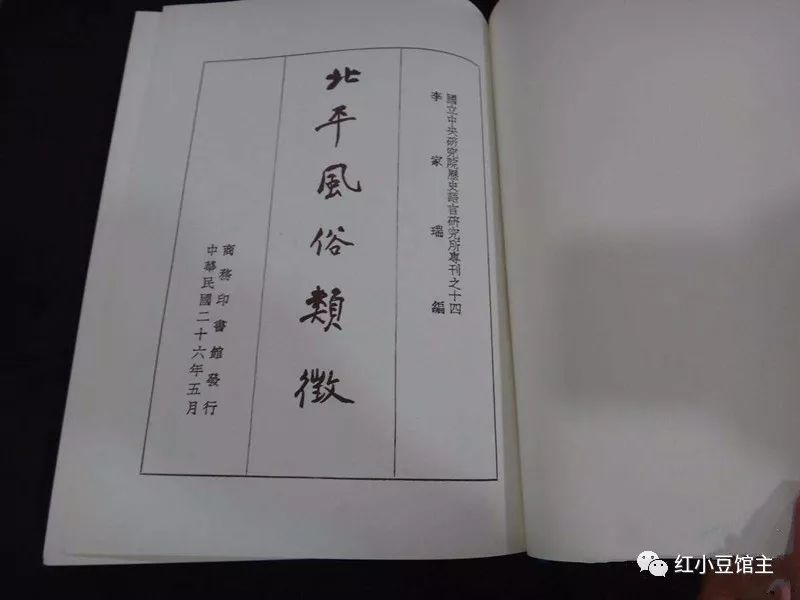 國立中央研究院歷史語言研究所專刊之十四
李家瑞編
北平風俗類徵
商務印書館發行
中華民國二十六年五月
红小豆馆主